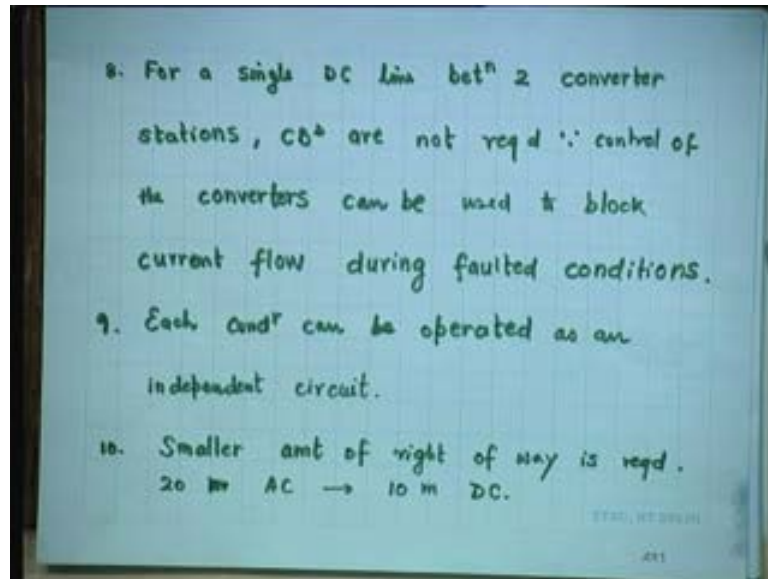 8. For a single DC line betⁿ 2 converter
stations, CBˢ are not reqd ∵ control of
the converters can be used to block
current flow during faulted conditions.
9. Each condʳ can be operated as an
independent circuit.
10. Smaller amt of right of way is reqd.
20 m AC → 10 m DC.
ETSC, IIT DELHI